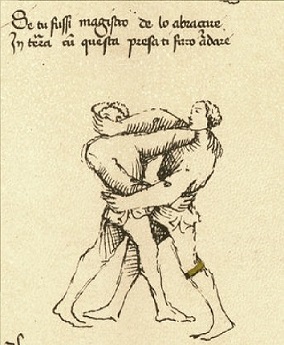 Se tu fussi magistro de lo abraçare
In terra cum questa presa ti farò andare